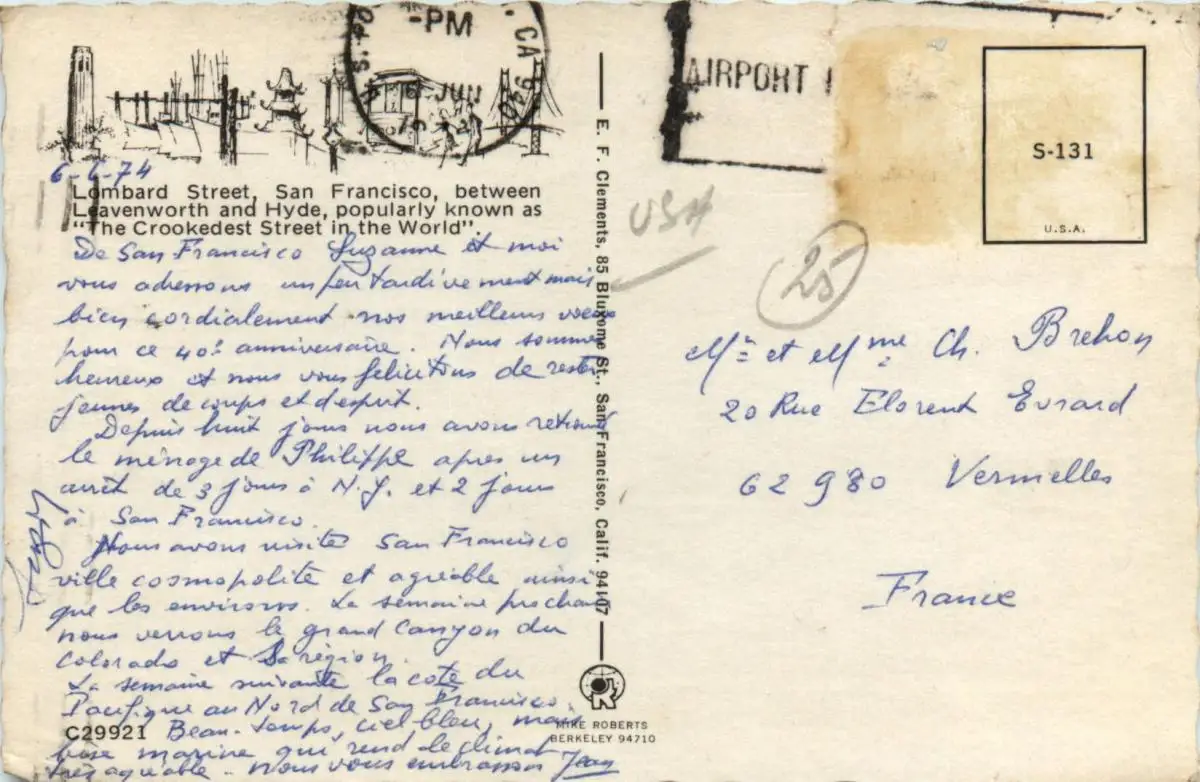 -PM
CA 940
6 JUN
AIRPORT
S-131
U.S.A.
6-6-74
Lombard Street, San Francisco, between
Leavenworth and Hyde, popularly known as
"The Crookedest Street in the World".
De San Francisco Suzanne et moi
vous adressons un peu tardivement mais
bien cordialement nos meilleurs voeux
pour ce 40e anniversaire. Nous sommes
heureux et nous vous félicitons de rester
jeunes de corps et d'esprit.
Depuis huit jours nous avons retrouvé
le ménage de Philippe après un
arrêt de 3 jours à N.Y. et 2 jours
à San Francisco.
Nous avons visité San Francisco
ville cosmopolite et agréable ainsi
que les environs. La semaine prochaine
nous verrons le grand Canyon du
Colorado et sa région.
La semaine suivante la côte du
Pacifique au Nord de San Francisco.
Beau temps, ciel bleu, mais
brise marine qui rend le climat
très agréable. Nous vous embrassons Jean
C29921
E. F. Clements, 85 Bluxome St., San Francisco, Calif. 94107
MIKE ROBERTS
BERKELEY 94710
USA
25
Mr et Mme Ch. Brehon
20 Rue Florent Evrard
62 980 Vermelles
France